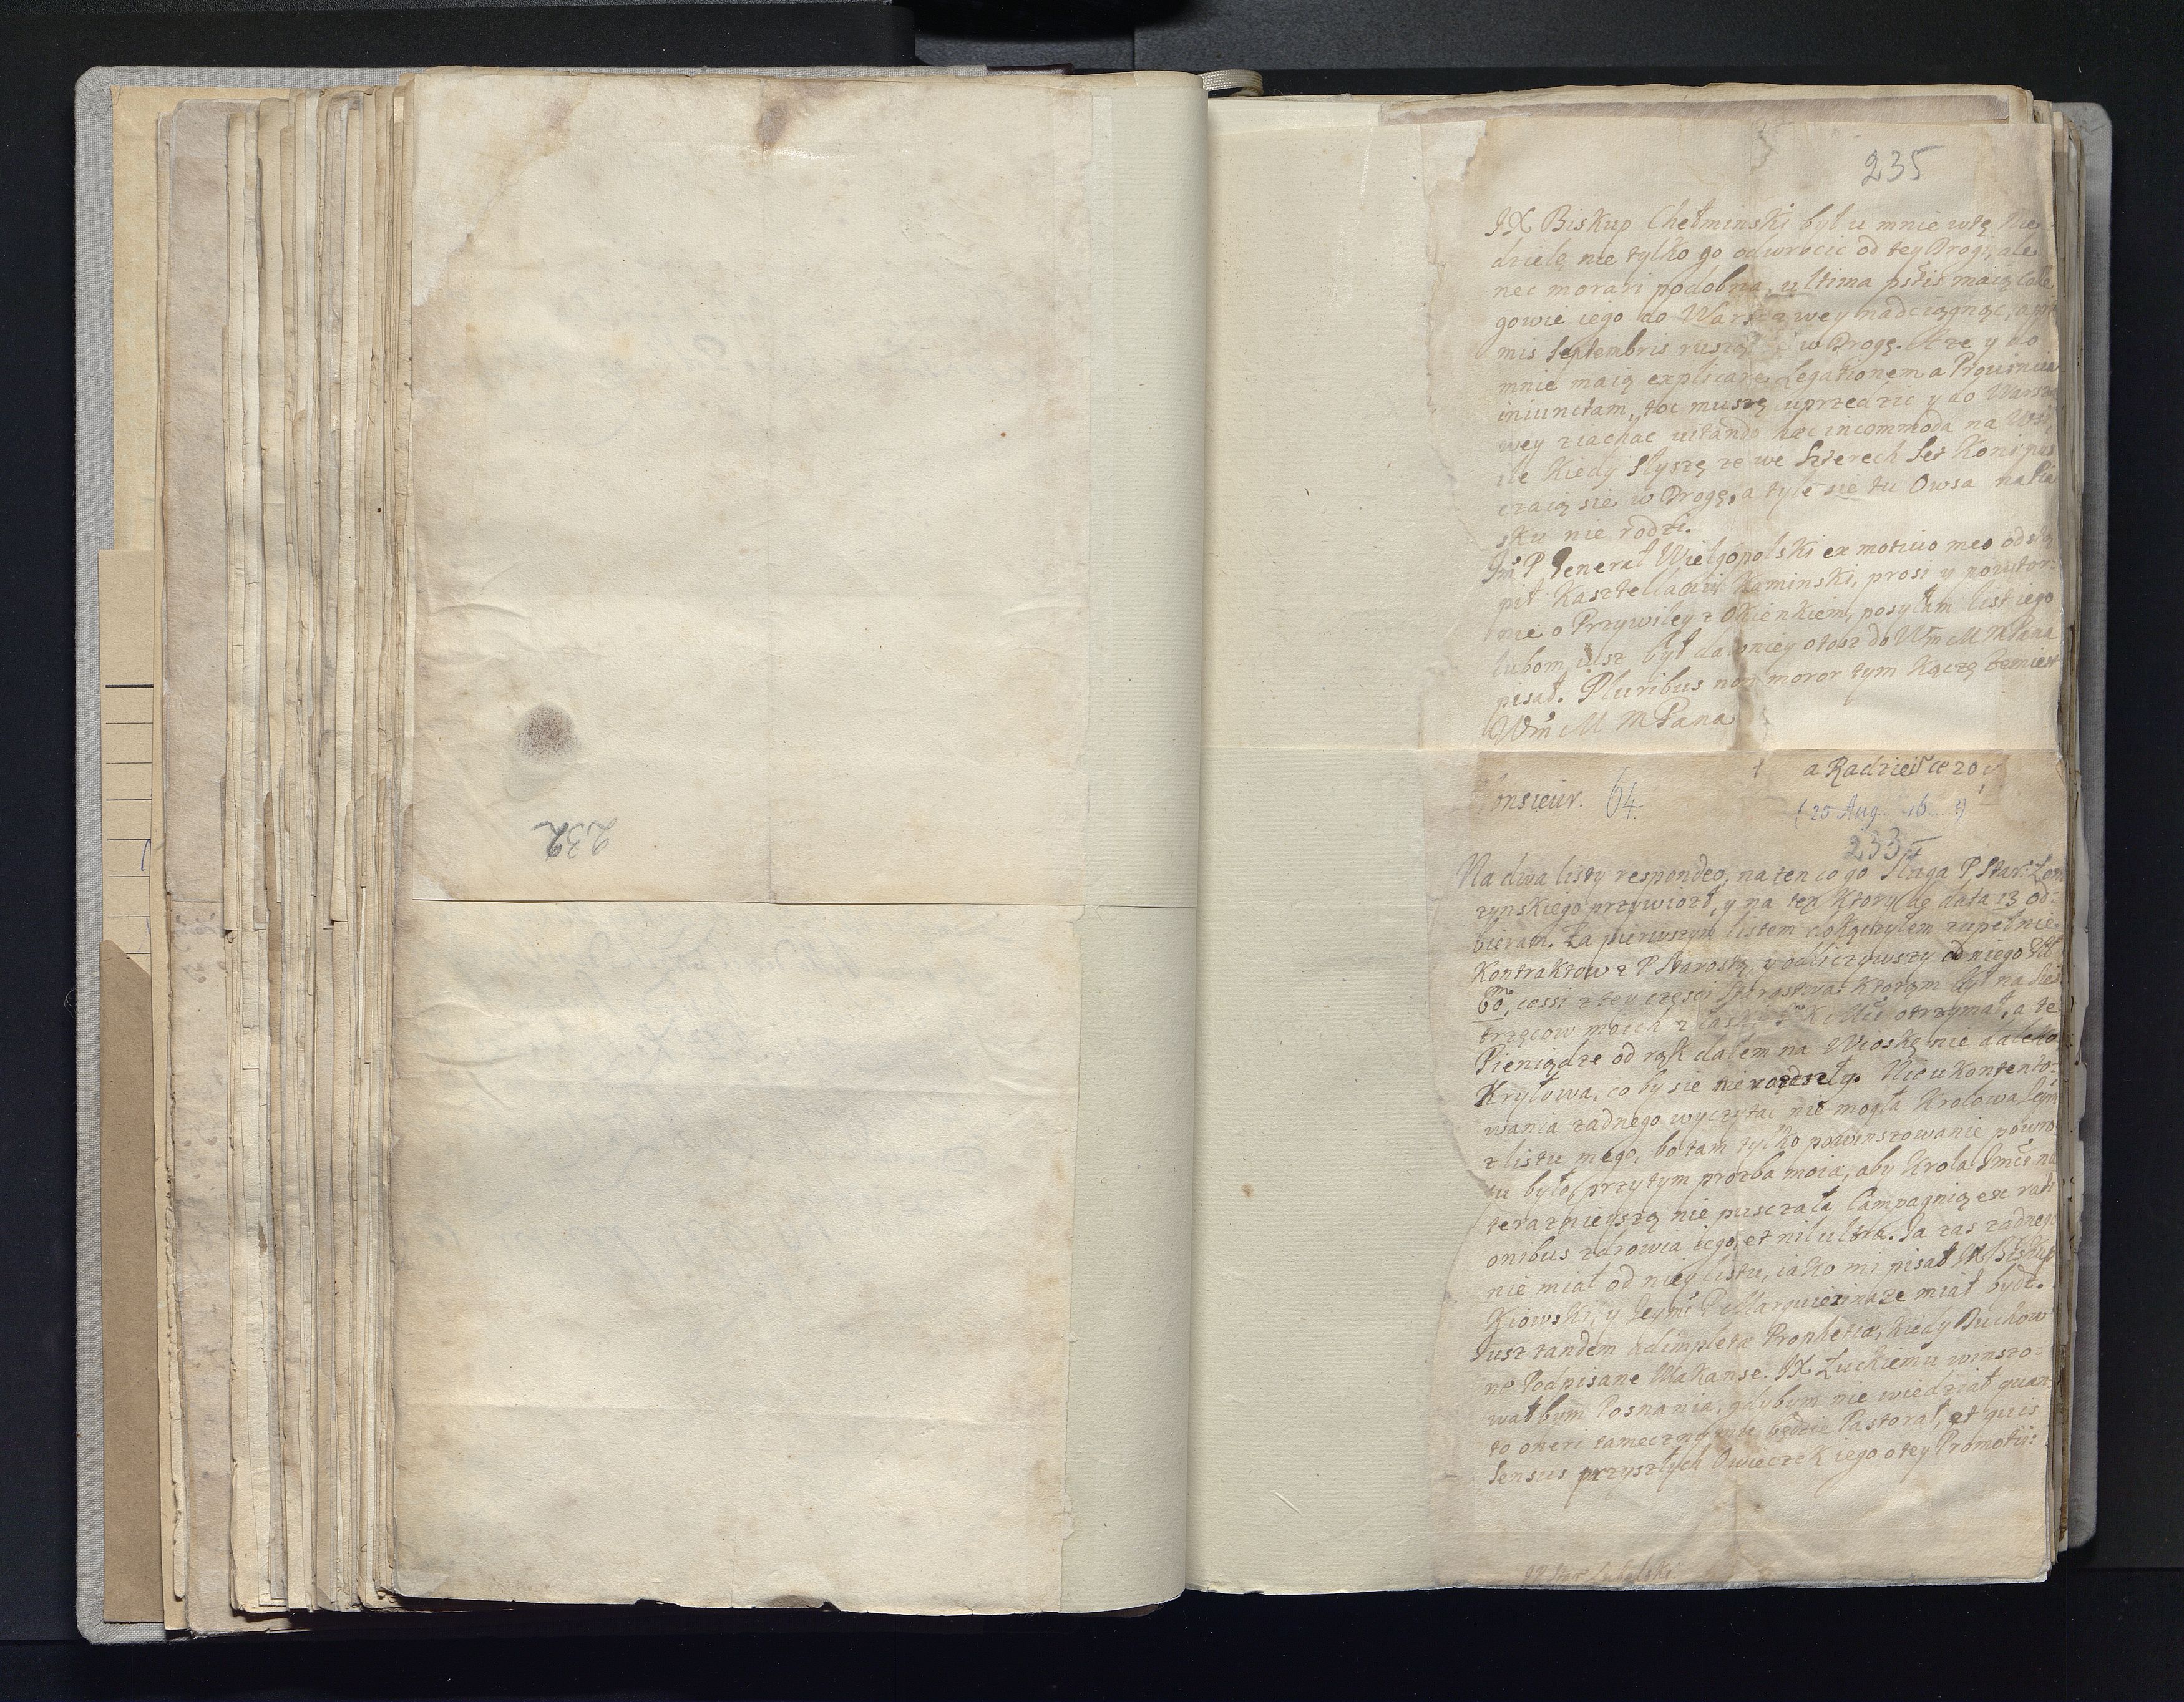 232
235
JX Biskup Chełminski był u mnie wtę Nie
dzielę nie tylko go odwrocic od tey Drogi, ale
nec morari podobna, ultima pstis maią Colle
gowie iego do Warszawey nadciągnąc, a pri
mis Septembris ruszą w Drogę. A ze y do
mnie maią explicare Legationem a Prouincia
iniunctam, toc muszę uprzedzic y do Warsza
wey ziachac uitando hæc incommoda na Wsi,
ile kiedy słyszę ze we szterech set koni pus
czaią sie w Drogę, a tyle sie tu Owsa na Pia
sku nie rodzi.
Jm P General Wielgopolski ex motiuo meo odstą
pił Kasztellanii Kaminski, prosi y powtor:
nie o Przywiley z Okienkiem, posyłam list iego
lubom iusz był dawniey otosz do Wm M MPana
pisał. Pluribus non moror tym kączę zemiest
Wm M MPana
a Radzieiowice 20
Monsieur. 64.
(25 Aug. 16 )
233
Na dwa listy respondeo, na ten co go sługa P Star: Łom
zynskiego przywiozł, y na ten ktory de data 13 od:
bieram. Za pierwszym listem dokączyłem zupełnie
Kontraktow z P Starostą, y odliczywszy od niego
cossi z tey części Starostwa ktorąm był na Sios
trzęcow moich z łaski otrzymał, a te
Pieniądze od rąk dałem na Wioskę nie daleko
Kryłowa, co by sie nie rozeszły. Nieukontento:
wania zadnego wyczytac nie mogła Krolowa Jeym
z listu mego, bo tam tylko powinszowanie powro
tu było, przy tym prozba moia, aby Krola Jmći na
terazniejszą nie pusczała Campagnią ex rati
onibus zdrowia iego, et nil ultra. Ja zas zadnego
nie miał od niey listu, iako mi pisał JX Biskup
Kiowski, y Jeymć P Marquizina ze miał bydz.
Jusz tandem adimpleta Prophetia, kiedy Duchow
ne Podpisane Wakanse. JX Łuckiemu winszo:
wał bym Posnania, gdybym nie wiedział quan
to oneri tamecznymu będzie Pastorał, et quis
sensus przyszłych Owieczek iego o tey Promotii:
JP Star Lubelski